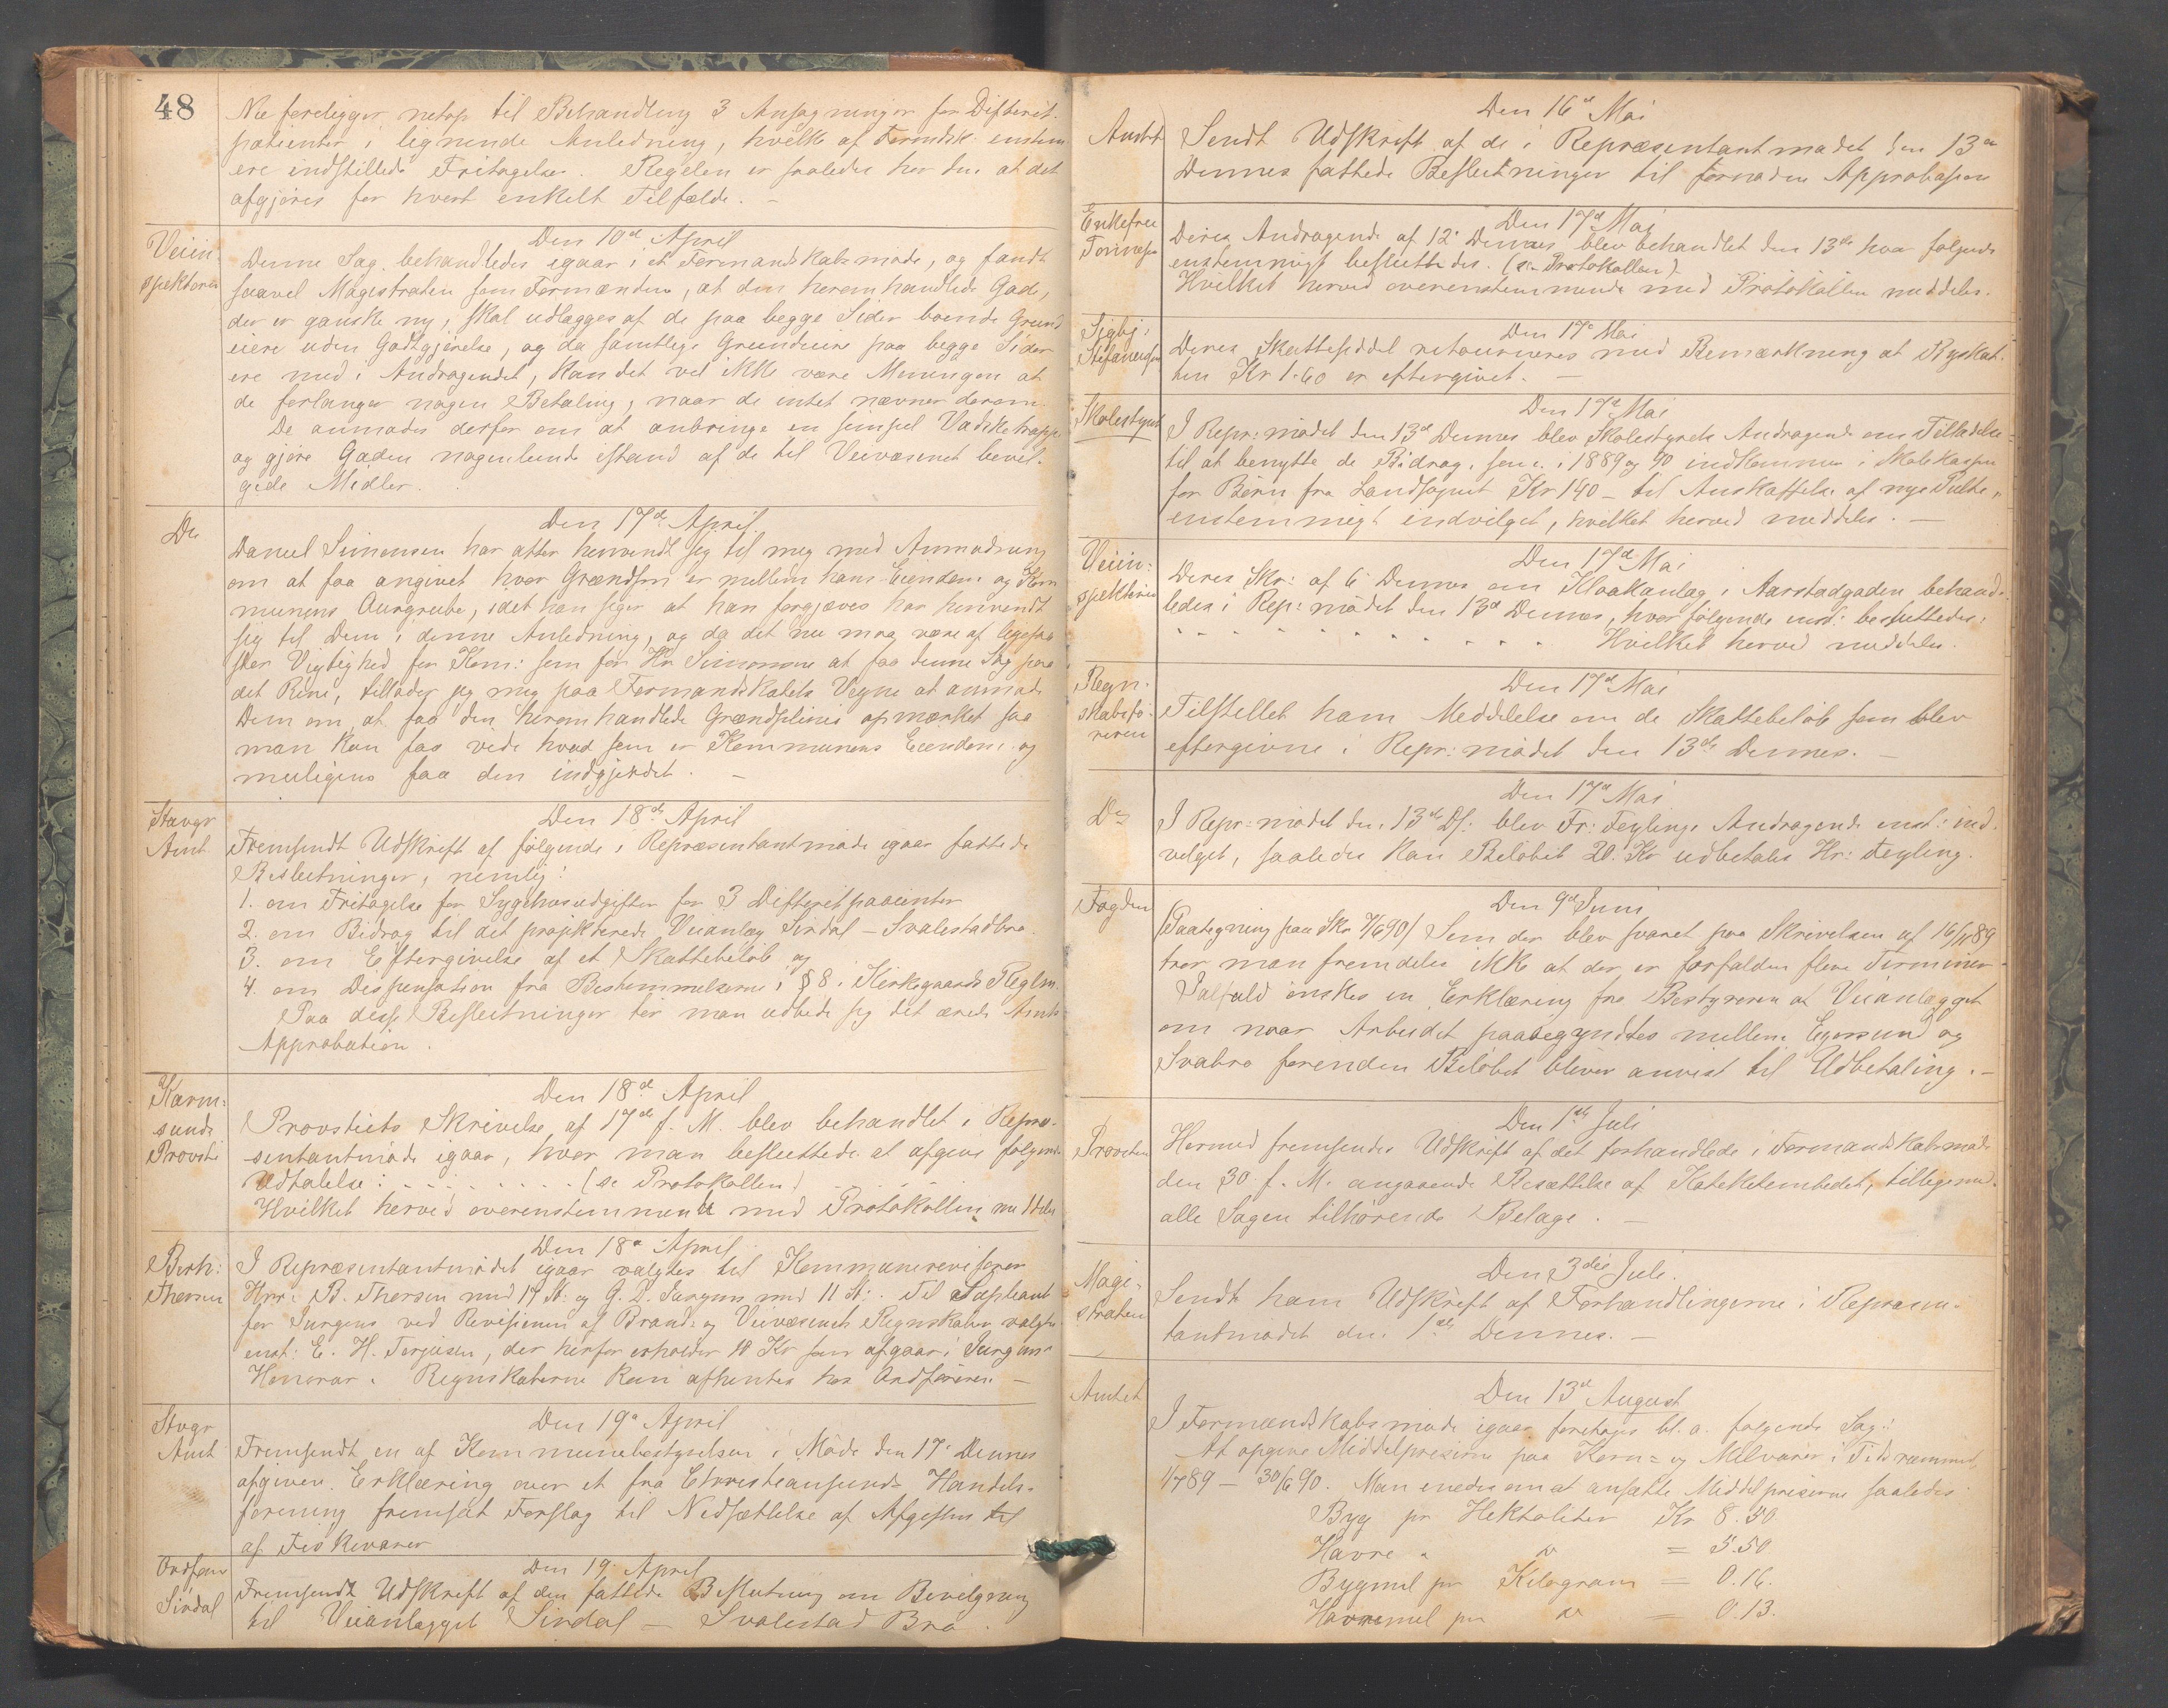 48
Nu foreligger netop til Behandling 3 Ansøgninger for Difterit-
patienter i lignende Anledning, hvilke af Formdsk. enstem
ere indstillede Fritagelse. Regelen er saaledes her den at det
afgjøres for hvert enkelt Tilfælde. –
Veiin-
spektøren
Den 10de April
Denne Sag behandledes igaar i et Formandskabsmøde, og fandt
saavel Magistraten som Formændene, at den heromhandlede Gade,
der er ganske ny, skal udlægges af de paa begge Sider boende Grund
eiere uden Godtgjørelse, og da samtlige Grundeiere paa begge Sider
ere med i Andragendet, kan det vel ikke være Meningen at
de forlanger nogen Betaling, naar de intet nævner derom.
De anmodes derfor om at anbringe en simpel Vadsketrappe
og gjøre Gaden nogenlunde istand af de til Veivæsenet bevil-
gede Midler.
Do
Den 17de April.
Daniel Simonsen har atter henvendt sig til mig med Anmodning
om at faa angivet hvor Grændsen er mellem hans Eiendom og Kom
munens Aurgrube, idet han siger at han forgjæves har henvendt
sig til Dem i denne Anledning, og da det nu maa være af ligesaa
stor Vigtighed for Kom: som for Hr Simonsen at faa denne Sag paa
det Rene, tillader jeg mig paa Formandskabets Vegne at anmode
Dem om at faa den heromhandlede Grændselinie opmærket saa
man kan faa vide hvad som er Kommunens Eiendom og
muligens faa den indgjerdet. –
Stavgr
Amt
Den 18de April
Fremsendt Udskrift af følgende i Repræsentantmøde igaar fattede
Beslutninger, nemlig:
1. om Fritagelse for Sygehusudgifter for 3 Difteritpasienter
2. om Bidrag til det projekterede Veianlæg Sirdal – Svalestadbro.
3. om Eftergivelse af et Skattebeløb og
4. om Dispensation fra Bestemmelserne i § 8 i Kirkegaards Reglm.
Paa disse Beslutninger tør man udbede sig det ærede Amts
Approbation.
Karm-
sunds
Provsti
Den 18de April
Provstiets Skrivelse af 17de f. M. blev behandlet i Repræ-
sentantmøde igaar, hvor man besluttede at afgive følgende
Udtalelse: . . . . . . . . (se Protokollen)
Hvilket herved overenstemmende med Protokollen meddeles
Berh:
Thorsen
Den 18de April
I Repræsentantmødet igaar valgtes til Kommunerevisorer
Hrr. B. Thorsen med 14 St: og G. D. Jurgens med 11 St:. Til Supleant
for Jurgens ved Revisionen af Brand- og Veivæsenets Regnskaber valgtes
enst: E. H. Terjesen, der herfor erholder 10 Kr som afgaar i Jurgens
Honorar. Regnskaberne kan afhentes hos Ordføreren –
Stvgr
Amt
Den 19de April
Fremsendt en af Kommunebestyrelsen i Møde den 17de Dennes
afgiven Erklæring over et fra Christiansunds Handels-
forening fremsat Forslag til Nedsættelse af Afgiften til
af Fiskevarer
Ordføreren
Sirdal
Den 19de April
Fremsendt Udskrift af den fattede Beslutning om Bevilgning
til Veianlægget Sirdal – Svalestad Bro.
Amtet
Den 16de Mai
Sendt Udskrift af de i Repræsentantmødet den 13de
Dennes fattede Beslutninger til fornøden Approbasion
Enkefru
Tønnesen
Den 17de Mai
Deres Andragende af 12te Dennes blev behandlet den 13de hvor følgende
enstemmigt besluttedes. (se Protokollen)
Hvilket herved overenstemmende med Protokollen meddeles.
Sigbj:
Stefansen
Den 17de Mai
Deres Skatteseddel retourneres med Bemærkning at Byskat-
ten Kr 1.60 er eftergivet. –
Skolestyret
Den 17de Mai
I Repr:mødet den 13de Dennes blev Skolestyrets Andragende om Tilladelse
til at benytte de Bidrag, som i 1889 og 90 indkommer i Skolekassen
for Børn fra Landsognet Kr 140 – til Anskaffelse af nye Pulte,
enstemmigt indvilget, hvilket herved meddeles. –
Veiin-
spektøren
Den 17de Mai
Deres Skr: af 6 Dennes om Kloakanlæg i Aarstadgaden behand-
ledes i Rep:mødet den 13de Dennes, hvor følgende enst: besluttedes:
. . . . . . . . . . . . Hvilket herved meddeles.
Regn-
skabsfø-
reren
Den 17de Mai
Tilstillet ham Meddelelse om de Skattebeløb som blev
eftergivne i Repr:mødet den 13de Dennes. –
Do
Den 17de Mai
I Repr:mødet den 13de Ds: blev Fr: Feylings Andragende enst: ind-
vilget, saaledes kan Beløbet 20 Kr udbetales Hr: Feyling.
Fogden
Den 9de Juni
(Paategning paa Skr 7/6 90) Som der blev svaret paa Skrivelsen af 16/11 89
tror man fremdeles ikke at der er forfalden flere Terminer
Ialfald ønskes en Erklæring fra Bestyreren af Veianlægget
om naar Arbeidet paabegyndtes mellem Egersund og
Svabro forenden Beløbet bliver anvist til Udbetaling. –
Provsten
Den 1ste Juli
Hermed fremsendes Udskrift af det forhandlede i Formandskabsmøde
den 30 f. M. angaaende Besættelse af Kateketembedet, tilligemed
alle Sagen tilhørende Belage. –
Magi-
straten
Den 3die Juli.
Sendt ham Udskrift af Forhandlingerne i Repræsen-
tantmødet den 1ste Dennes. –
Amtet
Den 13de August
I Formandskabsmøde igaar foretages bl. a. følgende Sag:
At opgive Middelpriserne paa Korn- og Melvarer i Tidsrummet
1/7 89 – 30/6 90. Man enedes om at ansætte Middelpriserne saaledes
Byg pr Hektoliter Kr 8.50
Havre " " = 5.50
Bygmel pr Kilogram = 0.16.
Havremel pr " = 0.13.